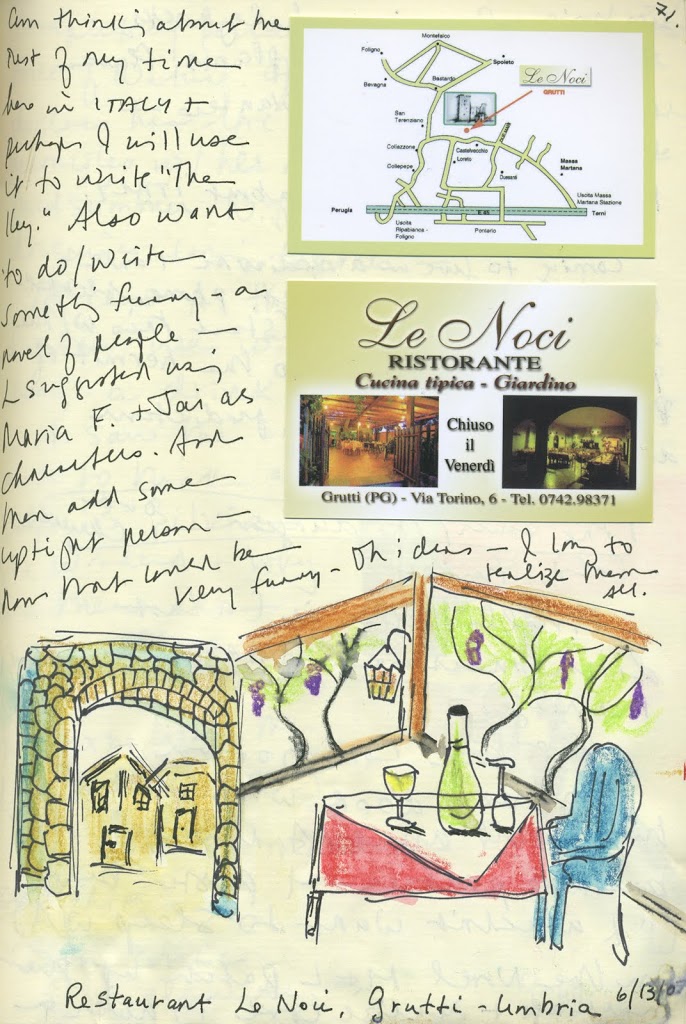 am thinking about the
rest of my time
here in ITALY +
perhaps I will use
it to write "The
Key." Also want
to do/write
something funny - a
novel of people -
L suggested using
Maria F. + Jai as
characters. And
then add some
uptight person -
now that would be
very funny - Oh ideas - I long to
realize them
all.
71.
Montefalco
Foligno
Spoleto
Bevagna
Bastardo
Le Noci
GRUTTI
San
Terenziano
Collazzone
Castelvecchio
Loreto
Collepepe
Duesanti
Massa
Martana
Uscita Massa
Martana Stazione
Perugia
E 45
Terni
Uscita
Ripabianca -
Foligno
Pontario
Le Noci
RISTORANTE
Cucina tipica - Giardino
Chiuso
il
Venerdì
Grutti (PG) - Via Torino, 6 - Tel. 0742.98371
Restaurant Le Noci, Grutti - Umbria 6/13/0